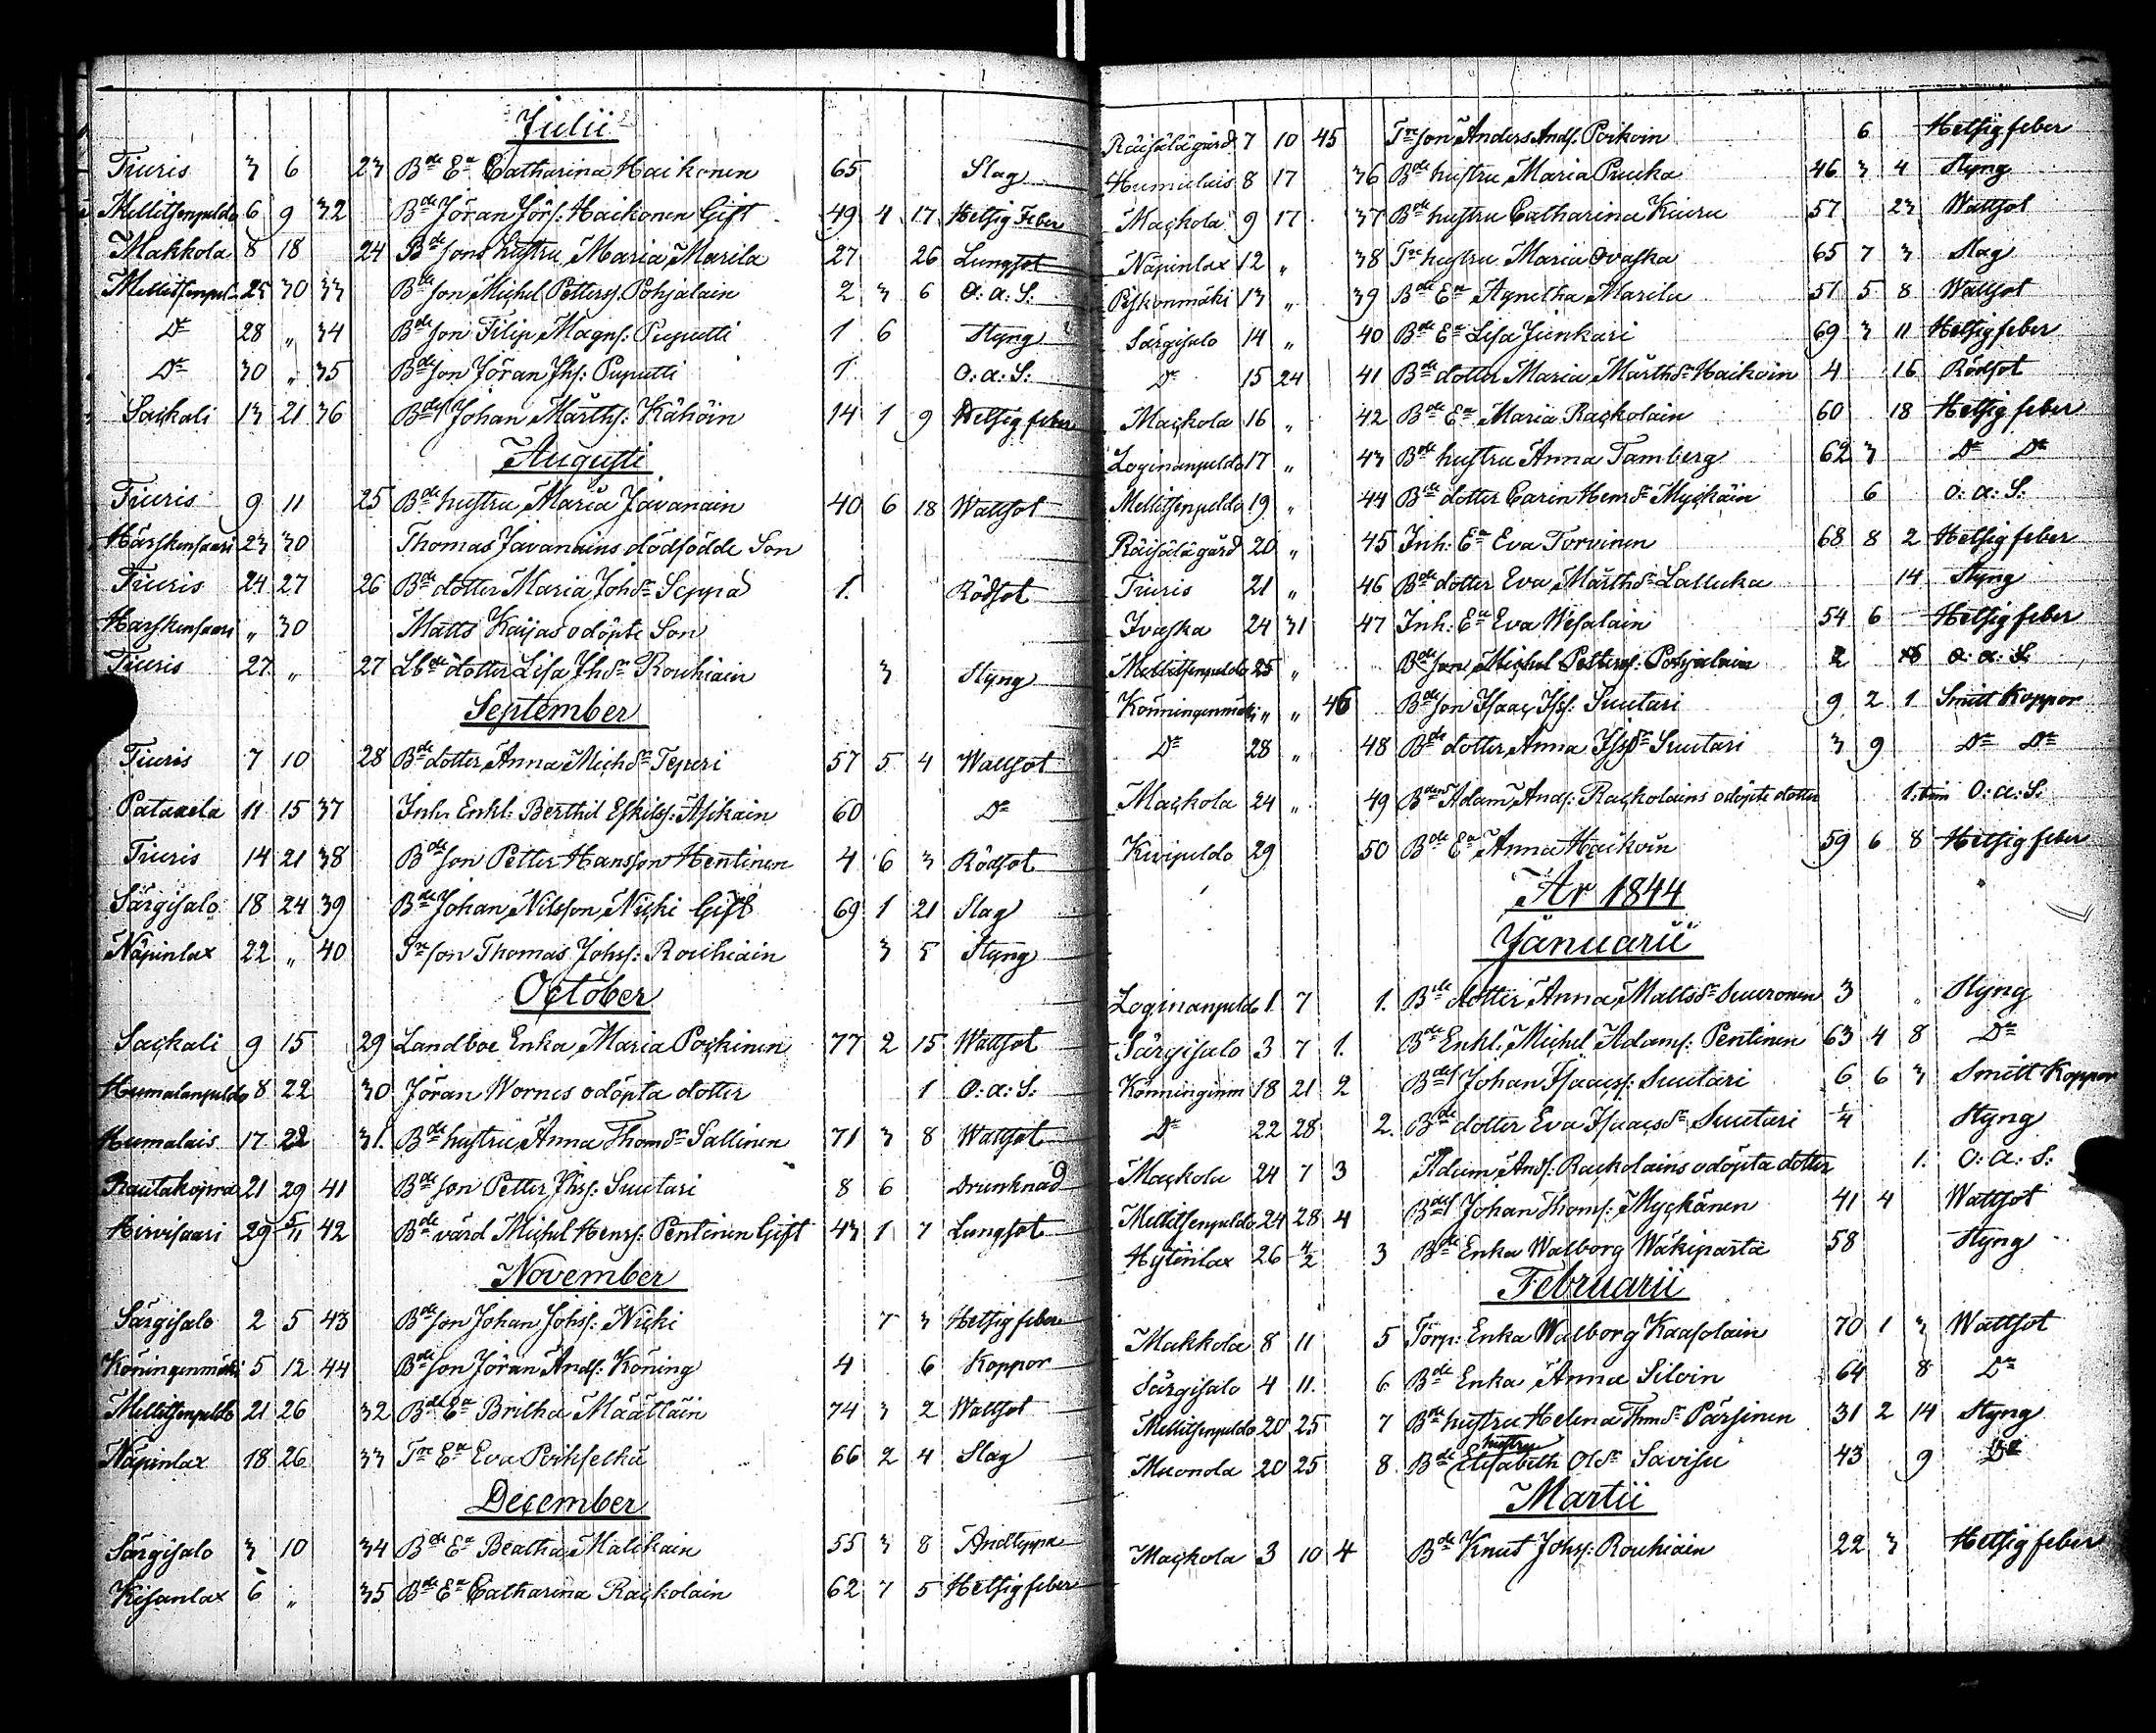 Julii
Tiuris 3 6 23 Bde Ea Catharina Haikonen 65 Slag
Mellitsenpeldo 6 9 32 Bde Jöran Jörs: Haikonen Gift 49 4 17 Hetsig Feber
Makkola 8 18 24 Bde sons hustru Maria Marila 27 26 Lungsot
Mellitsenpel 25 30 33 Bde son Michel Petterss. Pohjalain 2 3 6 O: a: S:
Do 28 „ 34 Bde son Filip Magns: Puputti 1 6 Styng
Do 30 „ 35 Bde son Jöran Jhs: Puputti 1 O: a: S:
Sackali 13 21 36 Bdes Johan Mårths: Kähöin 14 1 9 Hetsig feber
Augusti
Tiuris 9 11 25 Bde hustru Maria Javanain 40 6 18 Wattsot
Härskensaari 23 30 Thomas Javanains dödfödde Son
Tiuris 24 27 26 Bde dotter Maria Johdr Seppä 1. Rödsot
Harskensaari „ 30 Matts Kaijas odöpte Son
Tiuris 27 „ 27 Lbde dotter Lisa Jhdr Rouhiain 3 Styng
September
Tiuris 7 10 28 Bde dotter Anna Michdr Teperi 57 5 4 Wattsot
Pataxela 11 15 37 Inh. Enkl: Berthil Eskilss: Asikain 60 Do
Tiuris 14 21 38 Bde son Petter Hansson Hentinen 4 6 3 Rödsot
Särgisalo 18 24 39 Bde Johan Nilsson Nicki Gift 69 1 21 Slag
Näpinlax 22 „ 40 Tr son Thomas Johss: Rouhiain 3 5 Styng
October
Sackali 9 15 29 Landboe Enka Maria Pockinen 77 2 15 Wattsot
Humalanpeldo 8 22 30 Jöran Wornes odöpta dotter 1 O: a: S:
Humalais 17 22 31. Bde hustru Anna Thomdr Sallinen 71 3 8 Wattsot
Rautakopra 21 29 41 Bde son Petter Jhss: Suutari 8 6 Drunknad
Hirvisaari 29 5/11 42 Bde värd Michel Henrs: Pentinen Gift 43 1 7 Lungsot
November
Särgisalo 2 5 43 Bde son Johan Johss: Nicki 7 3 Hetsig feber
Köningenmäki 5 12 44 Bde son Jöran Ands: Köning 4 6 Koppor
Mellitsenpeldo 21 26 32 Bde Ea Britha Määttäin 74 3 2 Wattsot
Näpinlax 18 26 33 Tr Ea Eva Poikselkä 66 2 4 Slag
December
Särgisalo 3 10 34 Bde Ea Beatha Malikain 55 3 8 Andteppa
Kisanlax 6 „ 35 Bde Ea Catharina Rackolain 62 7 5 Hetsig feber
Räisälägård 7 10 45 Tr son Anders Ands: Poikoin 6 Hetsig feber
Humalais 8 17 36 Bde hustru Maria Pruuka 46 3 4 Styng
Mackola 9 17 37 Bde hustru Catharina Kiuru 57 23 Wattsot
Näpinlax 12 „ 38 Tr hustru Maria Ovaska 65 7 3 Slag
Pyskönmäki 13 „ 39 Bde Ea Agnetha Marila 51 5 8 Wattsot
Särgisalo 14 „ 40 Bde Ea Lisa Junkari 69 3 11 Hetsig feber
Do 15 24 41 Bde dotter Maria Mårthdr Haikoin 4 16 Rödsot
Mackola 16 „ 42 Bde Ea Maria Rackolain 60 18 Hetsig feber
Loginanpeldo 17 „ 43 Bde hustru Anna Tamberg 62 3 Do Do
Mellitsenpeldo 19 „ 44 Bde dotter Carin Henrdr Myckäin 6 O: a: S:
Räisälägård 20 „ 45 Inh: Ea Eva Torvinen 68 8 2 Hetsig feber
Tiuris 21 „ 46 Bde dotter Eva Mårthdr Lallukka 14 Styng
Ivaska 24 31 47 Inh: Ea Eva Wesalain 54 6 Hetsig feber
Mellitsenpeldo 25 „ Bde son Michel Petterss. Pohjalain 2 O: a: S:
Könningenmäki „ „ 46 Bde son Isaac Iss: Suutari 9 2 1 Smitt Koppor
Do 28 „ 48 Bde dotter Anna Issdr Suutari 3 9 Do Do
Mackola 24 „ 49 Bdes Adam Ands: Rackolains odöpte dotter 1. tim O: a: S:
Kivipeldo 29 50 Bde Ea Anna Haikoin 59 6 8 Hetsig feber
År 1844
Januarii
Loginanpeldo 1 7 1. Bde dotter Anna Mattsdr Suuronen 3 Styng
Särgisalo 3 7 1. Bde Enkl: Michel Adams: Pentinen 63 4 8 Do
Könninginm 18 21 2 Bdes Johan Isaacss: Suutari 6 6 3 Smitt Koppor
Do 22 28 2. Bde dotter Eva Isaacsdr Suutari 1/4 Styng
Mackola 24 7 3 Adam Ands: Rackolains odöpta dotter 1. O: a: S:
Mellitsenpeldo 24 28 4 Bdes Johan Thoms: Myckänen 41 4 Wattsot
Hytinlax 26 4/2 3 Bde Enka Walborg Wäkiparta 58 Styng
Februarii
Makkola 8 11 5 Torp: Enka Walborg Kaasolain 70 1 3 Wattsot
Särgisalo 4 11. 6 Bde Enka Anna Siloin 64 8 Do
Mellitsenpeldo 20 25 7 Bde hustru Helena Thmdr Pärsinen 31 2 14 Styng
Muonola 20 25 8. Bde hustru Elisabeth Oldr Savisu 43 9 Do
Martii
Mackola 3 10 4 Bde Knut Johss: Rouhiain 22 3 Hetsig feber